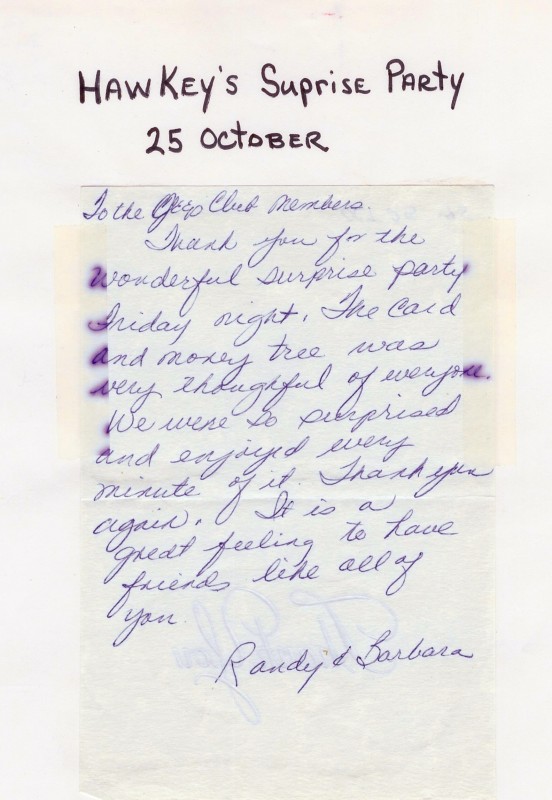 HAWKEY'S SUPRISE PARTY
25 OCTOBER
To the Jeep Club Members.
Thank you for the
wonderful surprise party
Friday night. The card
and money tree was
very thoughtful of everyone.
We were so surprised
and enjoyed every
minute of it. Thank you
again. It is a
great feeling to have
friends like all of
you.
Randy & Barbara
Thank You